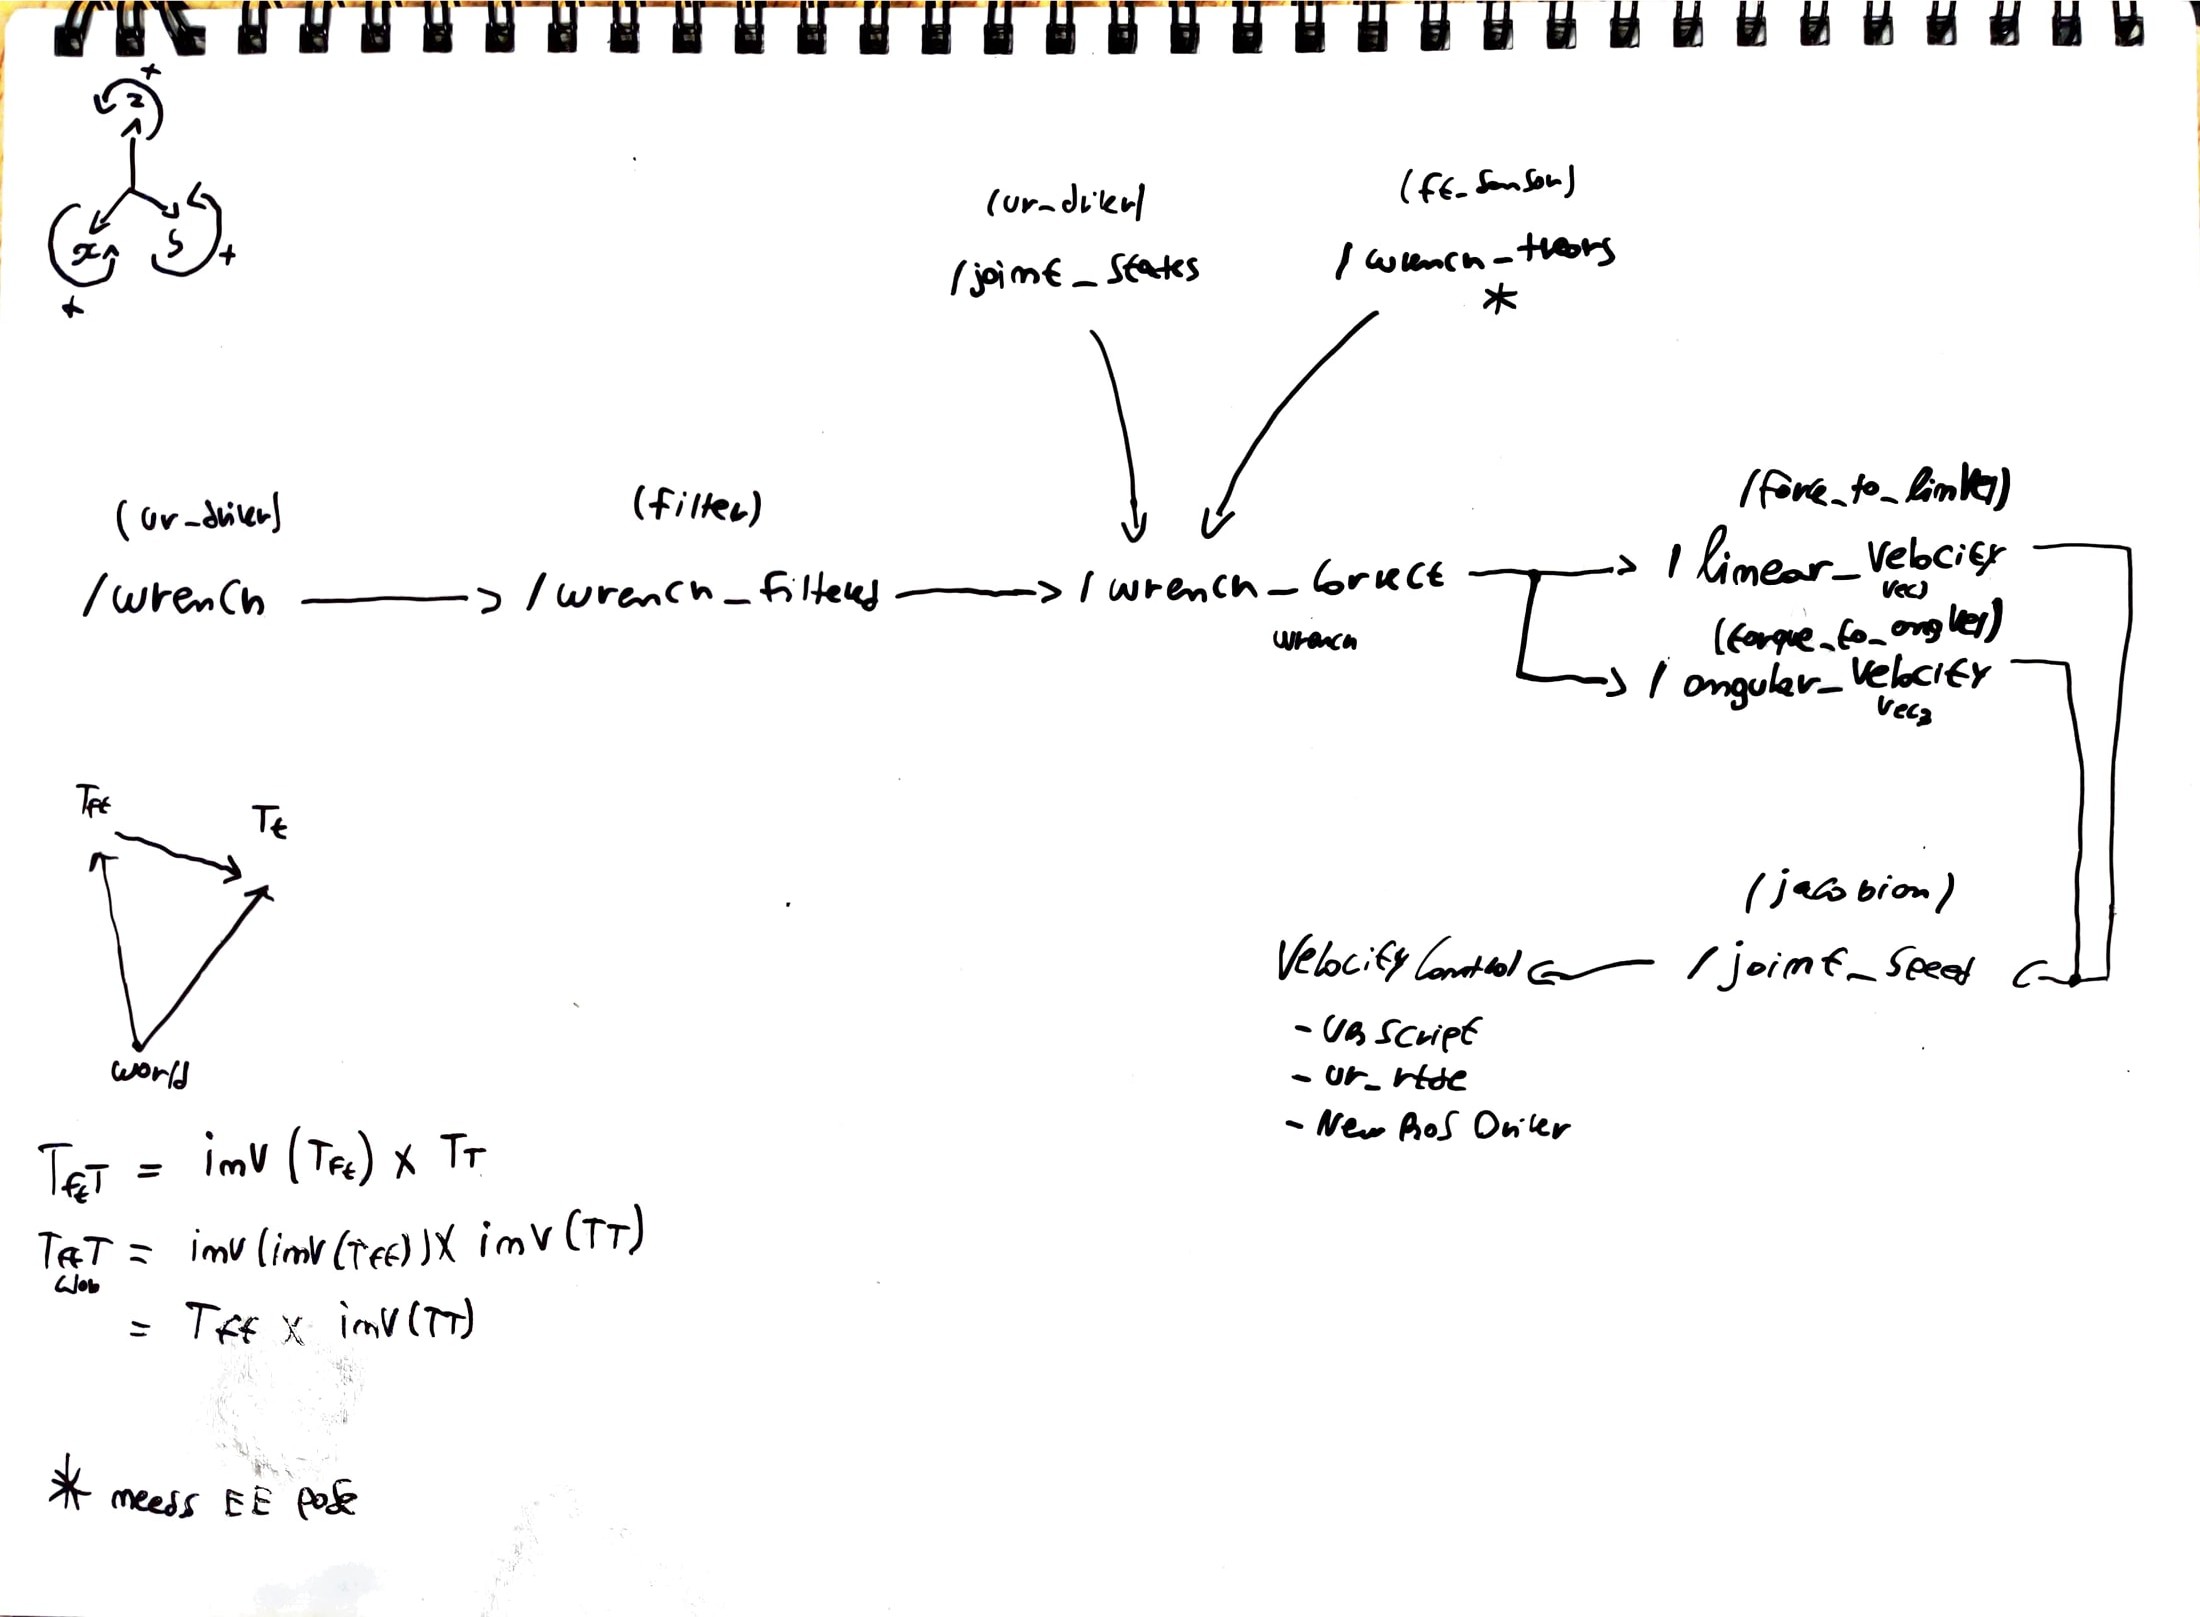 +
z
x
y
+
+
(ur_driver)
/joint_states
(ft_sensor)
/wrench_theory
*
(ur_driver)
/wrench
(filter)
/wrench_filtered
/wrench_correct
wrench
(force_to_linvel)
/linear_velocity
vec3
(torque_to_angvel)
/angular_velocity
vec3
(jacobian)
/joint_speed
Velocity Control
- UR Script
- ur_rtde
- New ROS Driver
Tft
Tt
world
TftT = inv (Tft) x TT
TftT = inv(inv(Tft)) x inv(TT)
= Tft x inv(TT)
* needs EE pose